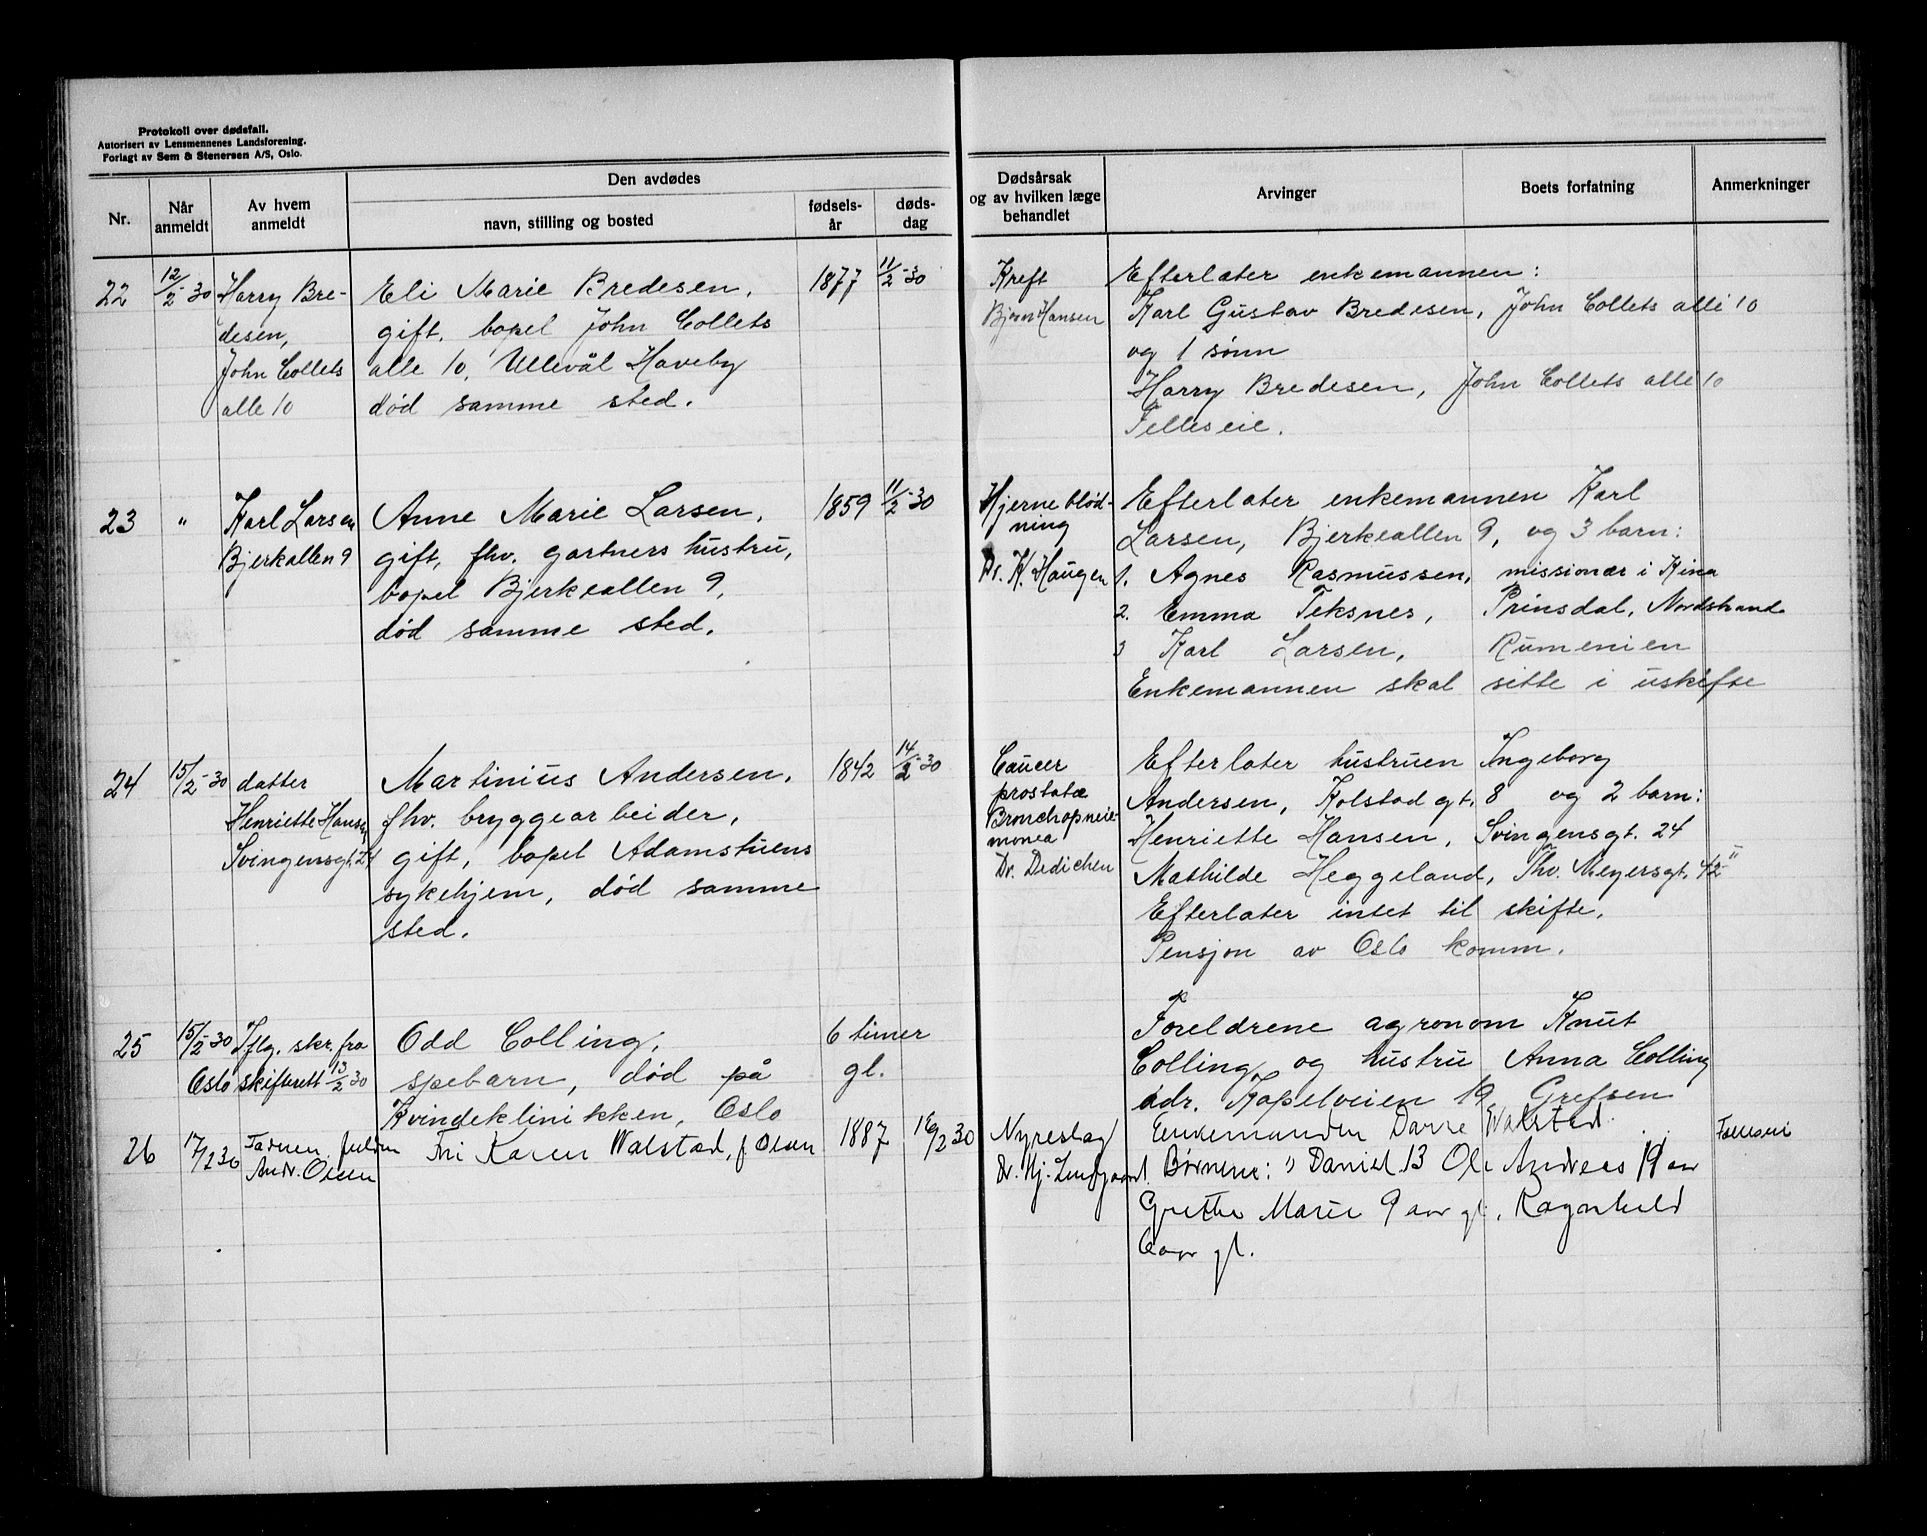 Protokoll over dødsfall.
Autorisert av Lensmennenes Landsforening.
Forlagt av Sem & Stenersen A/S, Oslo.
Nr.
Når anmeldt
Av hvem anmeldt
Den avdødes
navn, stilling og bosted
fødsels-år
døds-dag
Dødsårsak
og av hvilken læge
behandlet
Arvinger
Boets forfatning
Anmerkninger
22 12/2-30 Harry Bre- Eli Marie Bredesen, 1877 11/2-30 Kreft Efterlater enkemannen:
desen, gift, bopel John Collets Bjarne Hansen Karl Gustav Bredesen, John Collets alle 10
John Collets alle 10, Ullevål Haveby og 1 sønn
alle 10 død samme sted. Harry Bredesen, John Collets alle 10
Felleseie.
23 " Karl Larsen Anne Marie Larsen, 1859 11/2-30 Hjerneblød- Efterlater enkemannen Karl
Bjerkallen 9 gift, fhv. gartners hustru, ning Larsen, Bjerkeallen 9, og 3 barn:
bopel Bjerkeallen 9, Dr. K. Haugen 1. Agnes Rasmussen, missionær i Kina
død samme sted. 2. Emma Teksnes, Prinsdal, Nordstrand
3 Karl Larsen, Rumenien
Enkemannen skal sitte i uskifte
24 15/2-30 datter Martinius Andersen, 1842 14/2-30 Cancer Efterlater hustruen Ingeborg
Henriette Hansen fhv. bryggearbeider, prostatæ Andersen, Kolstadgt. 8 og 2 barn:
Svingensgt. 24 gift, bopel Adamstuens Bronchopneu- Henriette Hansen, Svingensgt. 24
sykehjem, død samme monea Mathilde Heggeland, Thv. Meyersgt. 42 II
sted. Dr. Dedichen Efterlater intet til skifte.
Pensjon av Oslo komm.
25 15/2-30 Iflg. skr. fra Odd Colling, 6 timer Foreldrene agronom Knut
Oslo skifterett 13/2 30 spebarn, død på gl. Colling og hustru Anna Colling
Kvindeklinikken, Oslo adr. Kapelveien 19 Grefsen
26 17/2 30 Andr. Olsen Karen Walstad, f Olsen 1887 16/2 30 Nyreslag Enkemanden Walstad.
Dr. Hj. Børnene: Daniel 13 Ole Andreas 19 aar
Grethe Marie 9 aar gl. Ragnhild
6 aar gl.